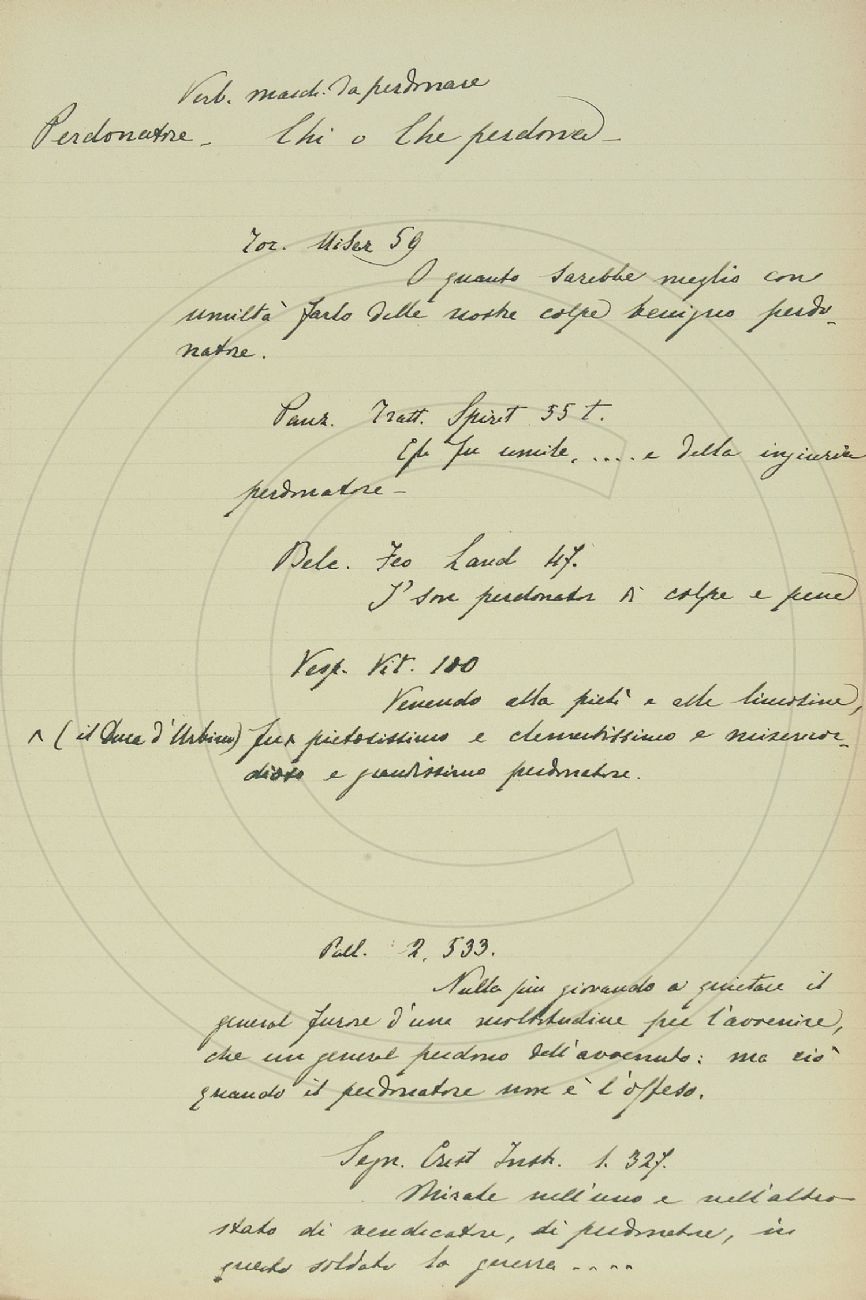 Verb. masch. da perdonare
Perdonatore. Chi o Che perdona
Tor. Miser 59
O quanto sarebbe meglio con
umiltà farlo delle nostre colpe benigno perdo-
natore.
Panz. Tratt. Spirit 55 t.
Egli fu umile, .... e della ingiuria
perdonatore-
Belc. Feo Laud 47.
I' son perdonator di colpe e pene
Vesp. Vit. 100
Venendo alla pietà e alle limosine,
^ (il Duca d'Urbino) fu ^ pietosissimo e clementissimo e misericor-
dioso e grandissimo perdonatore.
Pall. 2, 533.
Nulla più giovando a quietare il
general furore d'una moltitudine per l'avvenire,
che un general perdono dell'avvenuto: ma ciò
quando il perdonatore non è l'offeso.
Segn. Crist Instr. 1. 327.
Mirate nell'uno e nell'altro
stato di vendicatore, di perdonatore, in
questo soldato la guerra ....